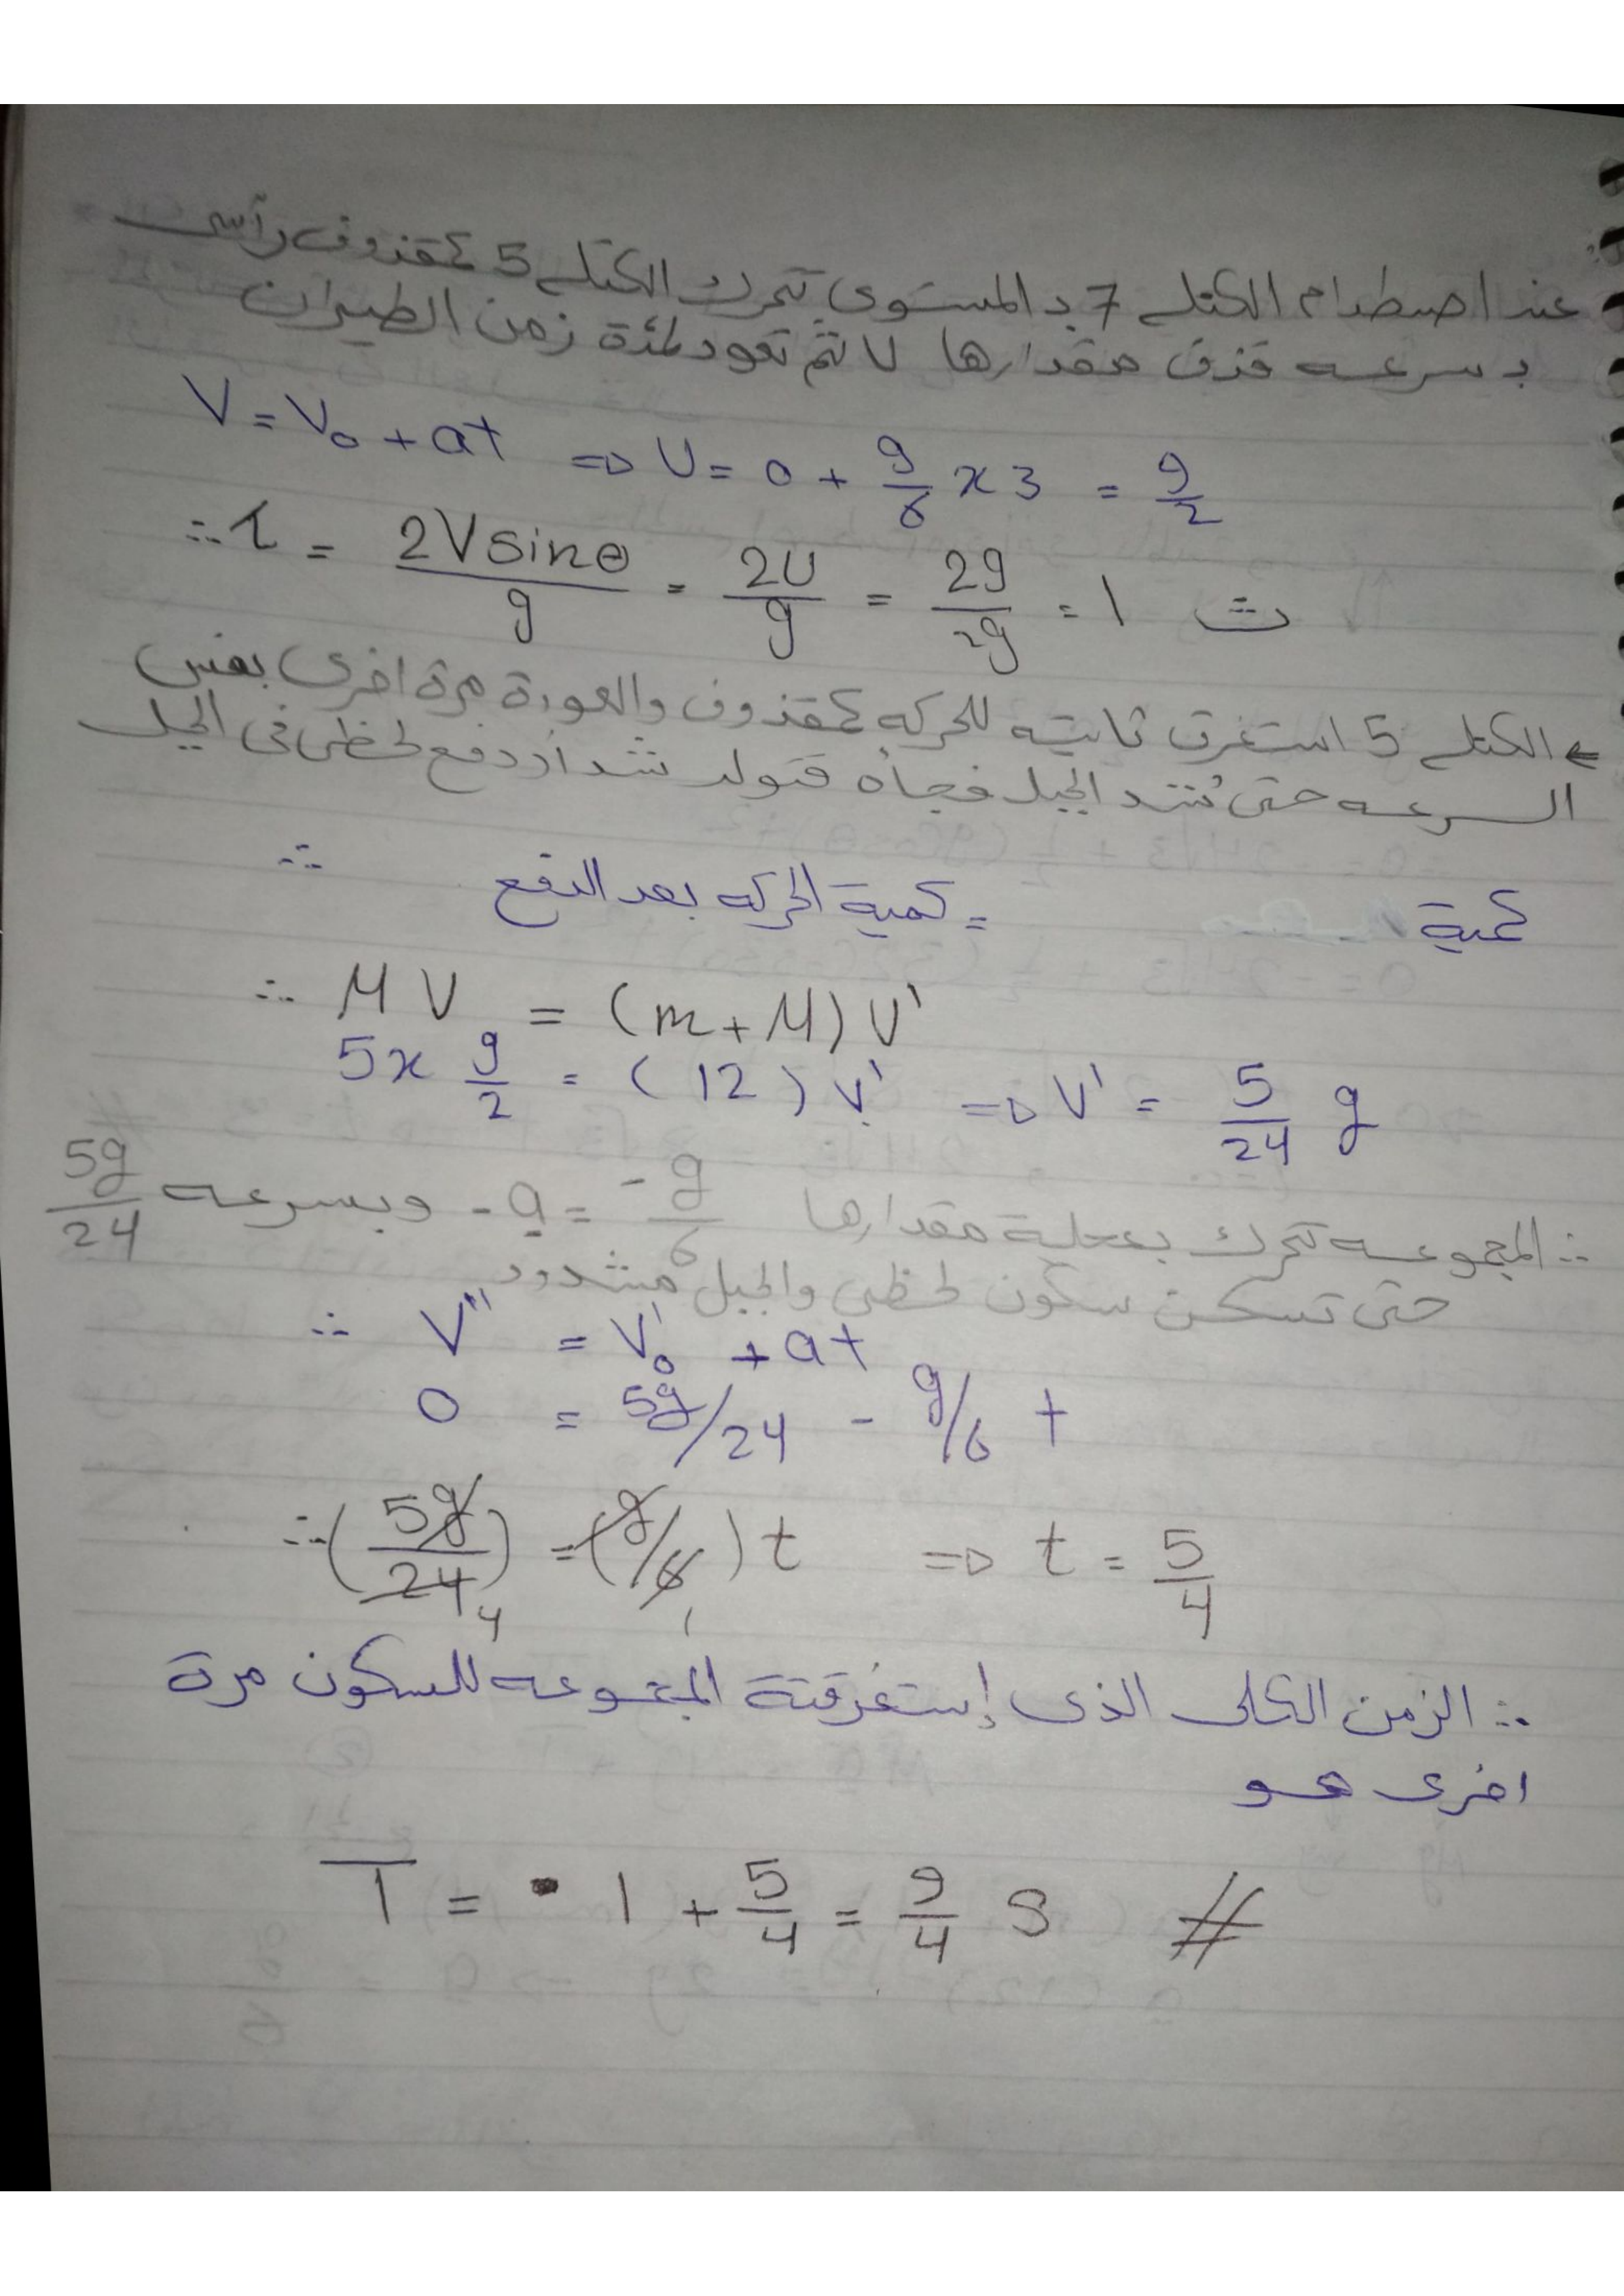 عند اصطدام الكتله 7 بـ المستوى تتحرك الكتله 5 كمقذوف رأسى
بسرعه قذف مقدارها U ثم تعود لمدة زمن الطيران
V = V₀ + at ⇒ U = 0 + g/6 x 3 = g/2
∴ τ = 2V sinθ / g = 2U/g = 2g/2g = 1 ث
← الكتله 5 استغرق ثانيه للحركه كمقذوف والعودة مرة اخرى بنفس
السرعه حتى يُشد الحبل فجأه فتولد شد أو دفع لحظى فى الحبل
∴ كمية = كمية الحركه بعد الدفع
∴ M V = (m + M) V'
5 x g/2 = (12) V' ⇒ V' = 5/24 g
∴ المجموعه تتحرك بعجلة مقدارها -g/6 = a- وبسرعه 5g/24
حتى تسكن سكون لحظى والحبل مشدود
∴ V'' = V'₀ + at
0 = 5g/24 - g/6 t
∴ (5g/24 4) = (g/6 1) t ⇒ t = 5/4
∴ الزمن الكلى الذى إستغرقتة المجموعه للسكون مرة
اخرى هو
T = 1 + 5/4 = 9/4 S #